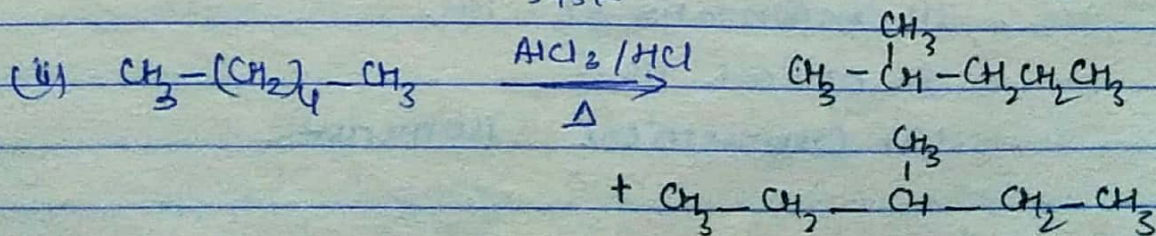 CH₃
(ii) CH₃-(CH₂)₄-CH₃ AlCl₃/HCl Δ CH₃-CH-CH₂CH₂CH₃
CH₃
+ CH₃-CH₂-CH-CH₂-CH₃